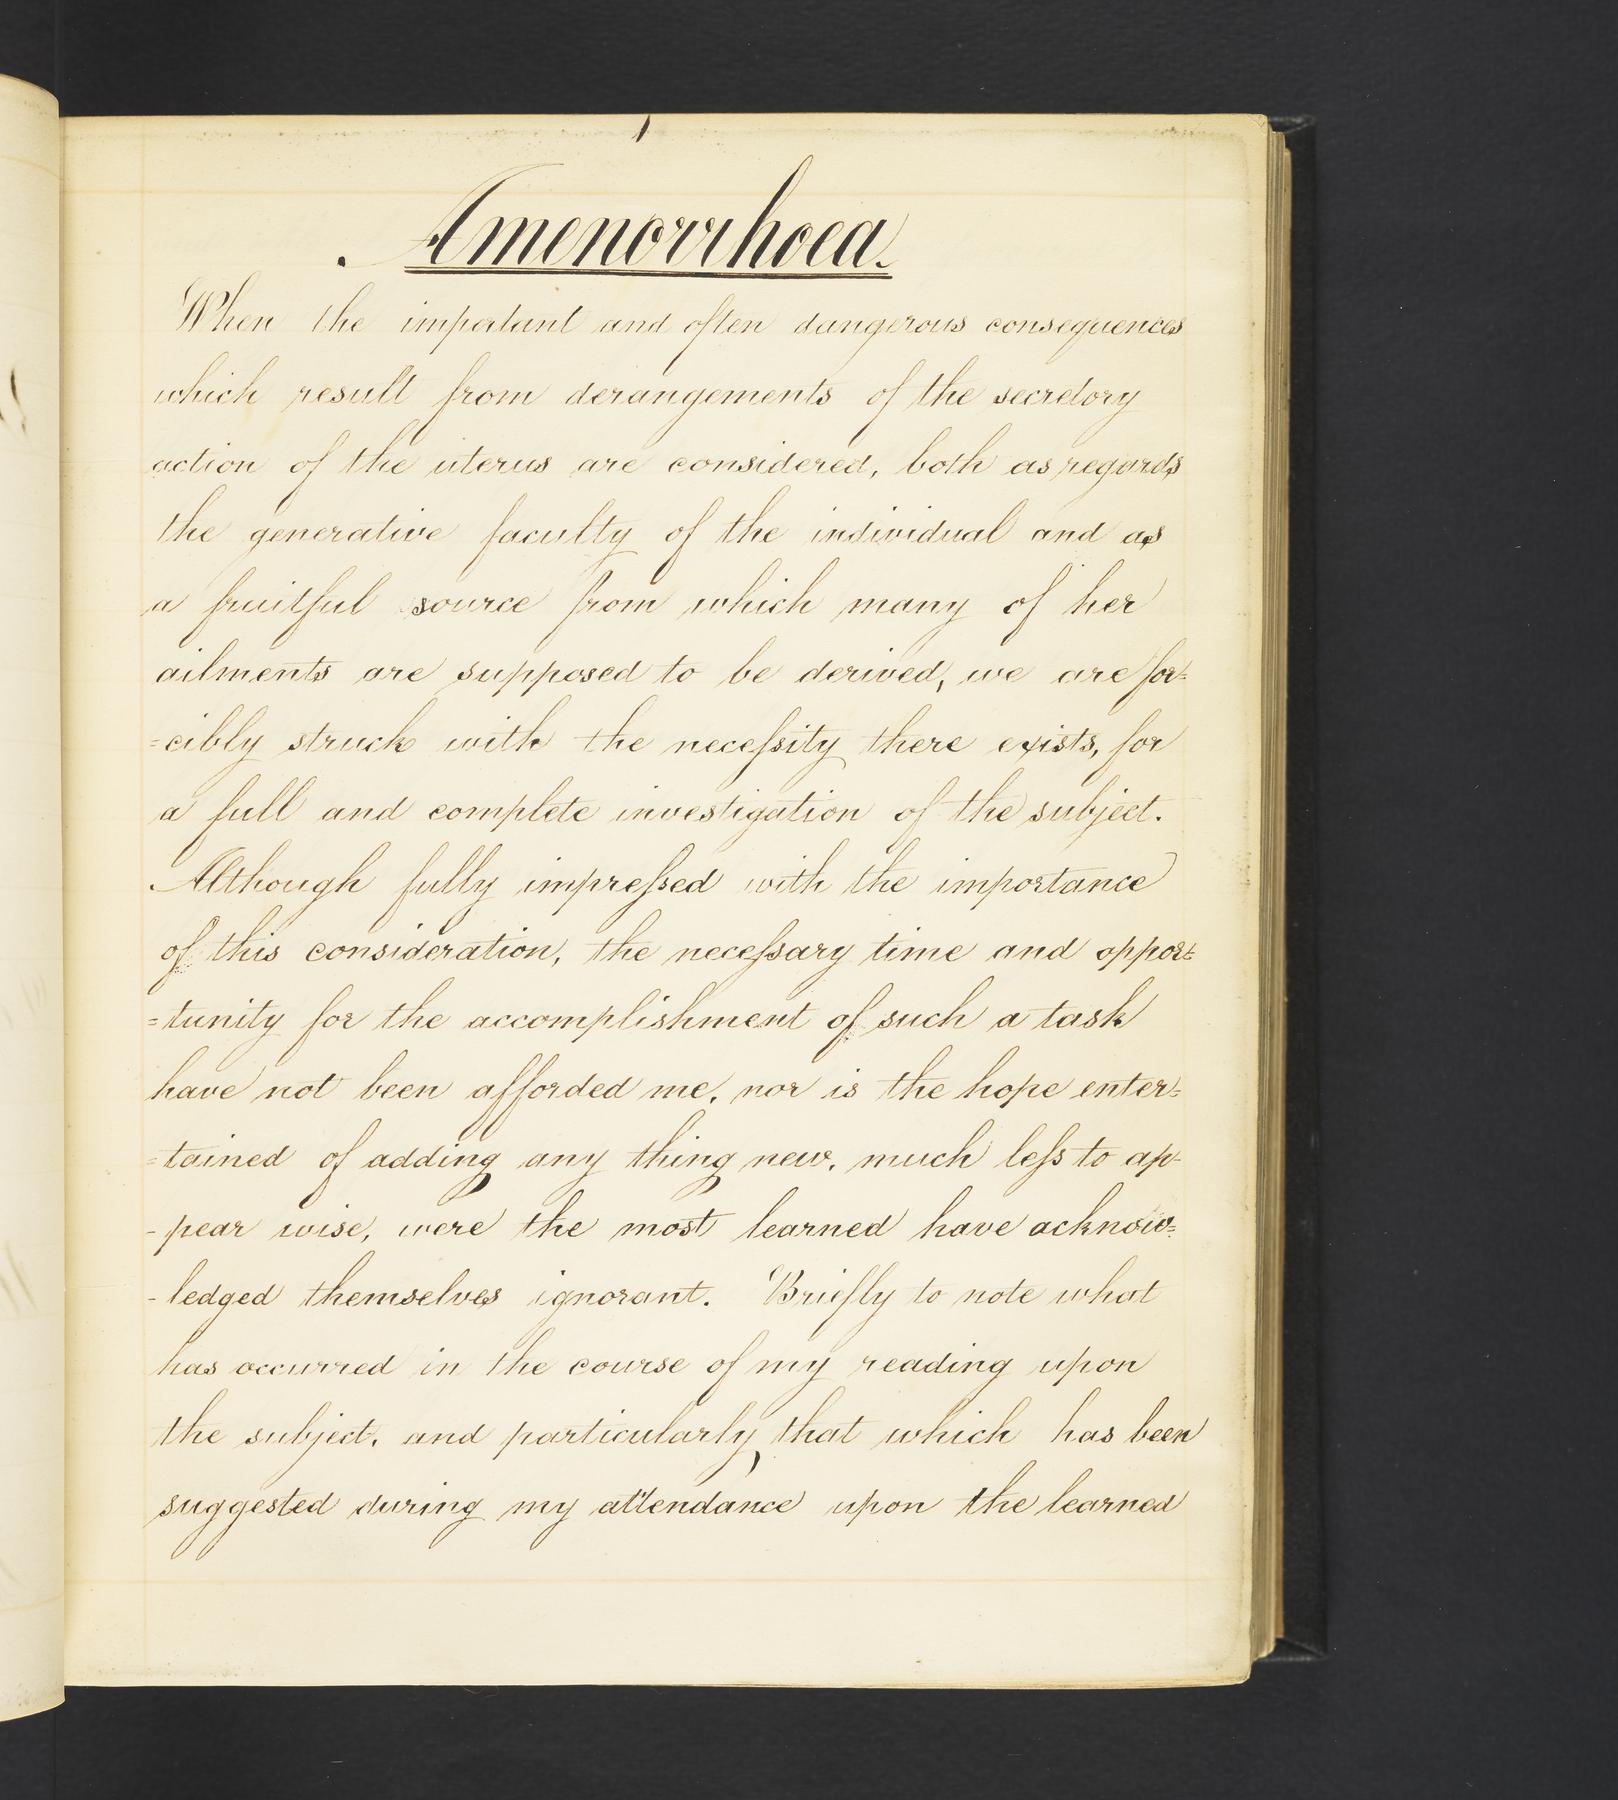 Amenorrhoea.
When the important and often dangerous consequences
which result from derangements of the secretory
action of the uterus are considered, both as regards
the generative faculty of the individual and as
a fruitful source from which many of her
ailments are supposed to be derived, we are for=
=cibly struck with the neceſsity there exists, for
a full and complete investigation of the subject.
Although fully impreſsed with the importance
of this consideration, the neceſsary time and oppor=
=tunity for the accomplishment of such a task
have not been afforded me, nor is the hope enter=
=tained of adding any thing new, much leſs to ap-
-pear wise, were the most learned have acknow=
-ledged themselves ignorant. Briefly to note what
has occurred in the course of my reading upon
the subject, and particularly, that which has been
suggested during my attendance upon the learned